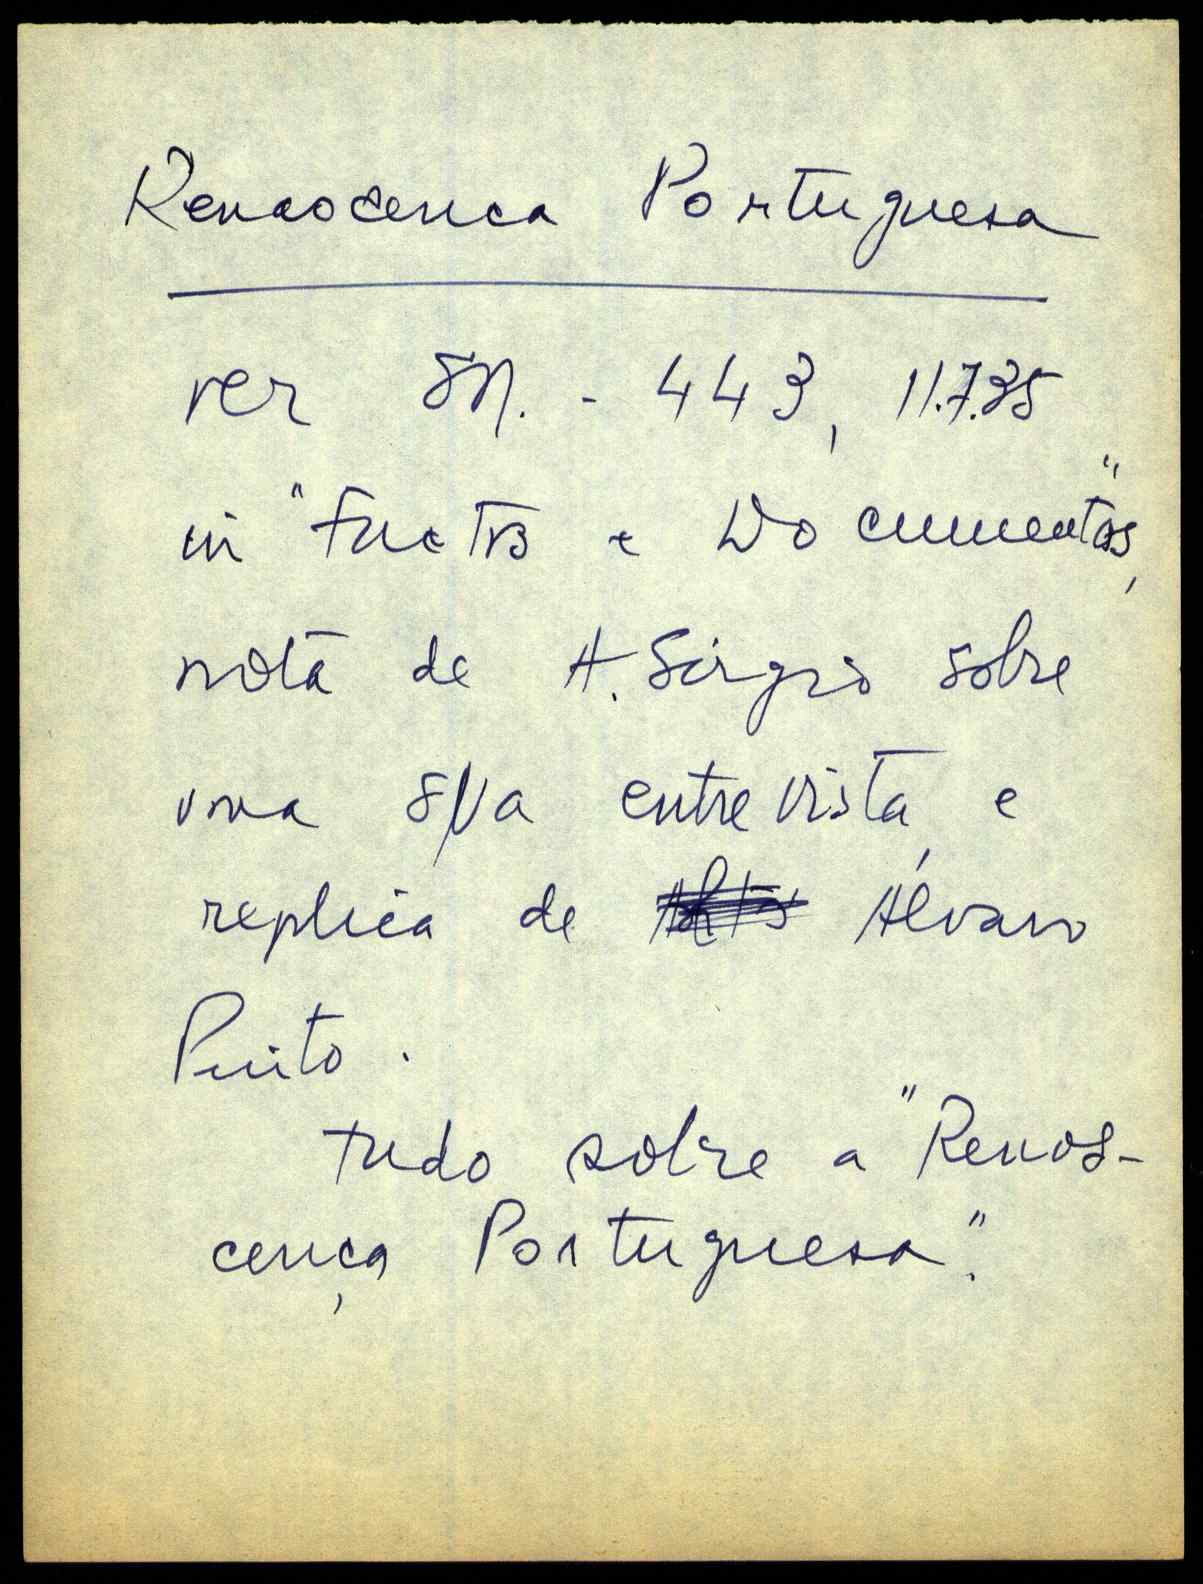 Renascença Portuguesa
ver SN. - 443, 11.7.35
in "Factos e Documentos",
nota de A. Sérgio sobre
uma sua entrevista, e
replica de Álvaro
Pinto.
tudo sobre a "Renas-
cença Portuguesa".